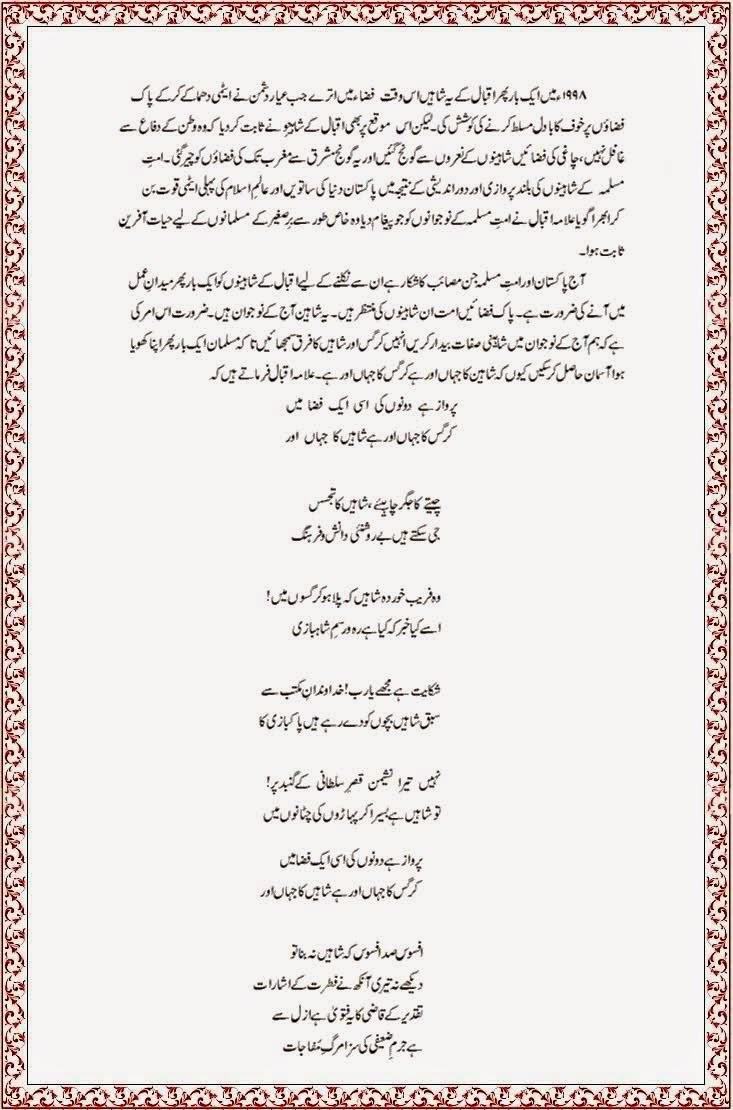 ۱۹۹۸ء میں ایک بار پھر اقبال کے یہ شاہیں اس وقت فضاء میں اترے جب عیار دشمن نے ایٹمی دھماکے کر کے پاک
فضاؤں پر خوف کا بادل مسلط کرنے کی کوشش کی۔ لیکن اس موقع پر بھی اقبال کے شاہینو نے ثابت کر دیا کہ وہ وطن کے دفاع سے
غافل نہیں، چاغی کی فضائیں شاہینوں کے نعروں سے گونج گئیں اور یہ گونج مشرق سے مغرب تک کی فضاؤں کو چیر گئی۔ امتِ
مسلمہ کے شاہینوں کی بلند پروازی اور دور اندیشی کے نتیجہ میں پاکستان دنیا کی ساتویں اور عالمِ اسلام کی پہلی ایٹمی قوت بن
کر ابھرا گویا علامہ اقبال نے امتِ مسلمہ کے نوجوانوں کو جو پیغام دیا وہ خاص طور سے برِصغیر کے مسلمانوں کے لیے حیات آفرین
ثابت ہوا۔
آج پاکستان اور امتِ مسلمہ جن مصائب کا شکار ہے ان سے نکلنے کے لیے اقبال کے شاہینوں کو ایک بار پھر میدانِ عمل
میں آنے کی ضرورت ہے۔ پاک فضائیں امت ان شاہینوں کی منتظر ہیں۔ یہ شاہین آج کے نوجوان ہیں۔ ضرورت اس امر کی
ہے کہ ہم آج کے نوجوان میں شاہینی صفات بیدار کریں انہیں کرگس اور شاہیں کا فرق سمجھائیں تا کہ مسلمان ایک بار پھر اپنا کھویا
ہوا آسمان حاصل کر سکیں کیوں کہ شاہین کا جہاں اور ہے کرگس کا جہاں اور ہے۔ علامہ اقبال فرماتے ہیں کہ
پرواز ہے دونوں کی اسی ایک فضا میں
کرگس کا جہاں اور ہے شاہیں کا جہاں اور
چیتے کا جگر چاہئیے، شاہیں کا تجسس
جی سکتے ہیں بے روشنئی دانش و فرہنگ
وہ فریب خوردہ شاہیں کہ پلا ہو کرگسوں میں!
اسے کیا خبر کہ کیا ہے رہ و رسمِ شاہبازی
شکایت ہے مجھے یا رب! خداوندانِ مکتب سے
سبق شاہیں بچوں کو دے رہے ہیں پاکبازی کا
نہیں تیرا نشیمن قصرِ سلطانی کے گنبد پر!
تو شاہیں ہے بسیرا کر پہاڑوں کی چٹانوں میں
پرواز ہے دونوں کی اسی ایک فضا میں
کرگس کا جہاں اور ہے شاہیں کا جہاں اور
افسوس صد افسوس کہ شاہیں نہ بنا تو
دیکھے نہ تیری آنکھ نے فطرت کے اشارات
تقدیر کے قاضی کا یہ فتویٰ ہے ازل سے
ہے جرمِ ضعیفی کی سزا مرگِ مفاجات